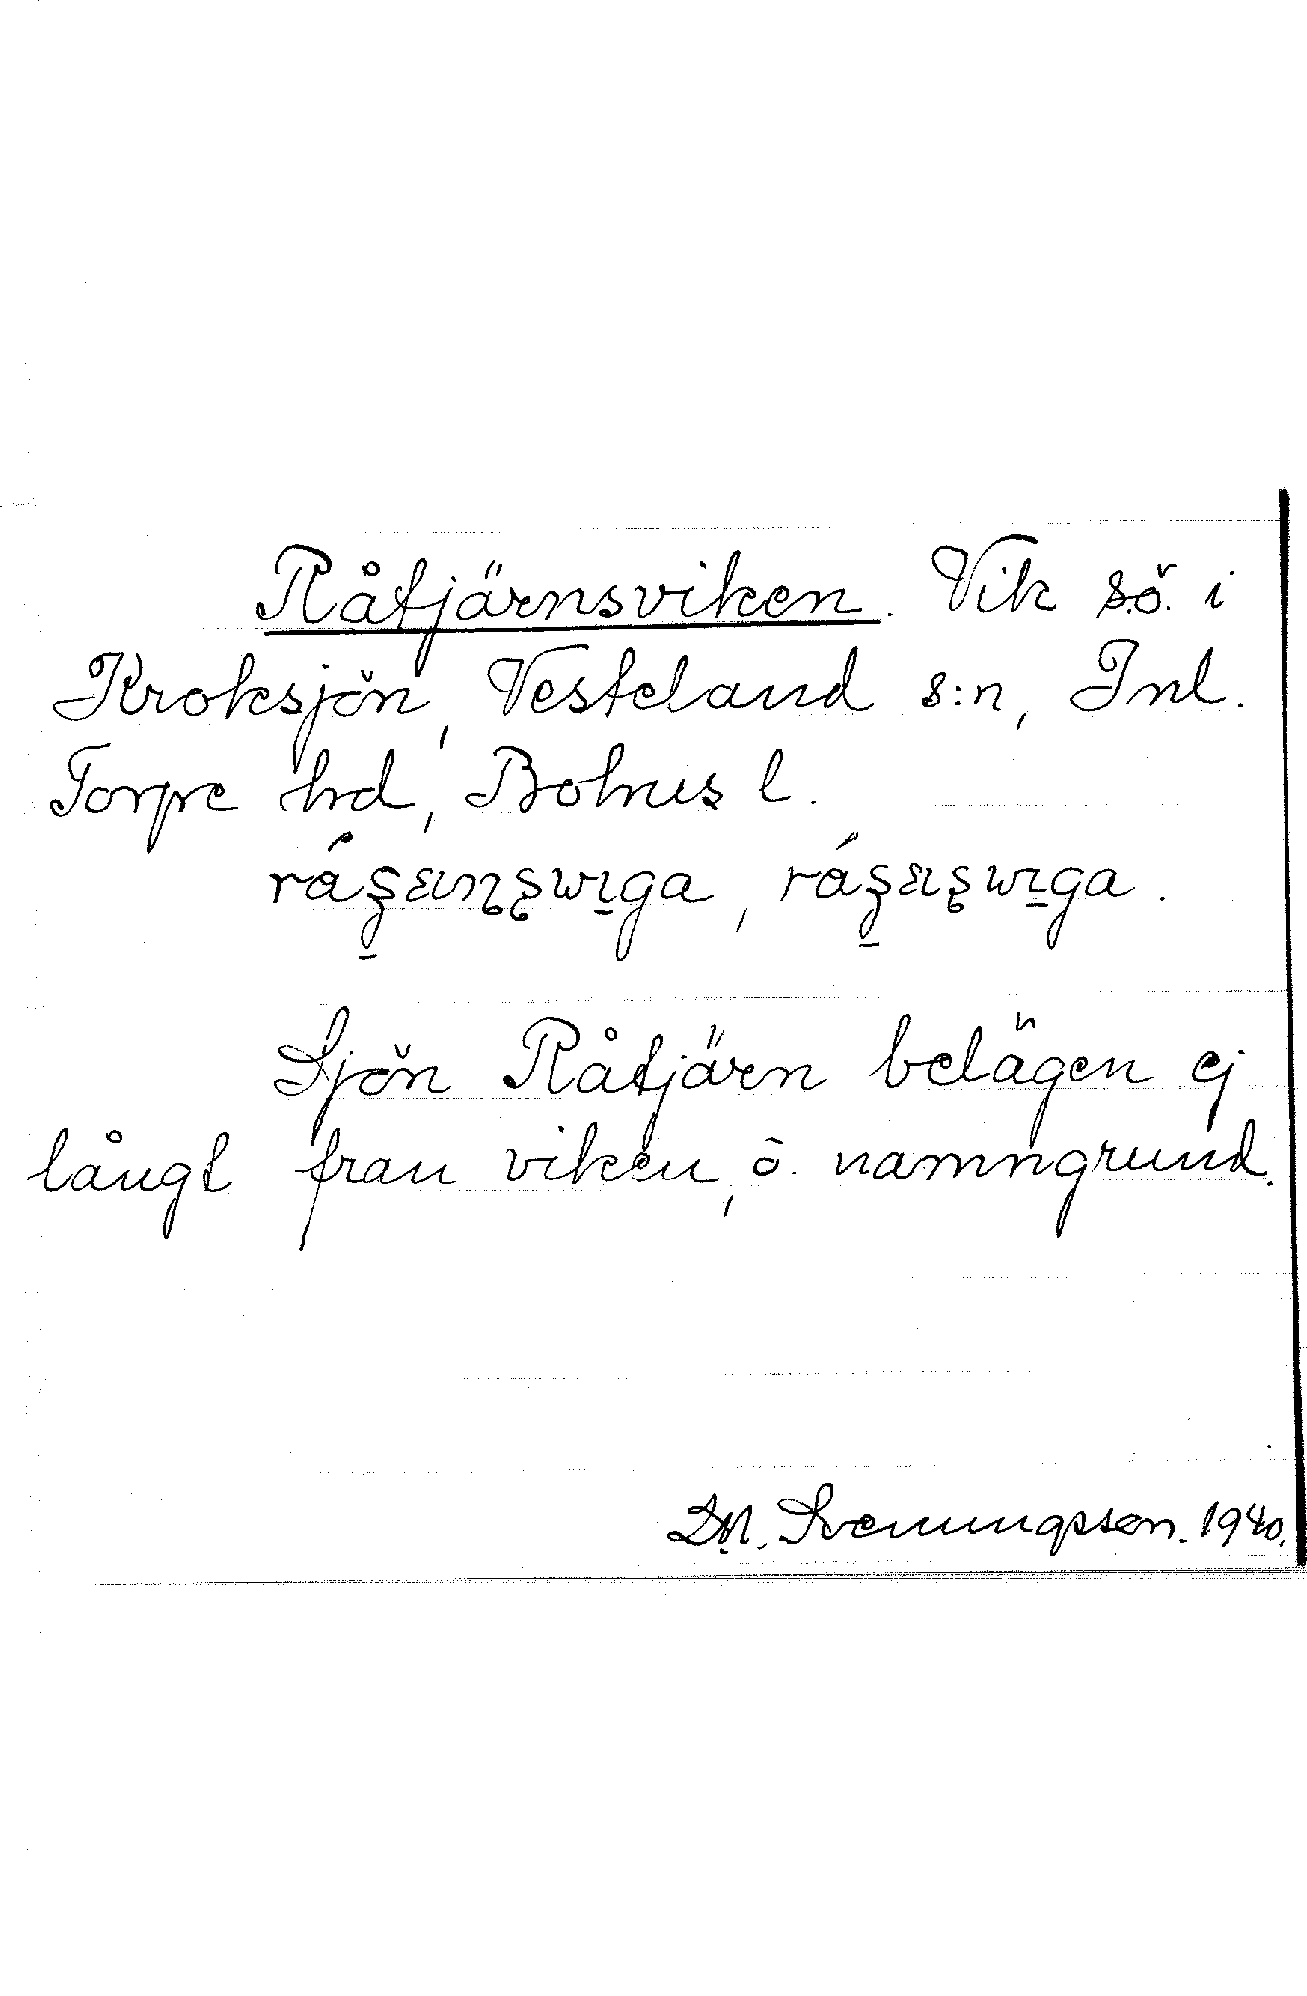 Råtjärnsviken. Vik s.ö. i
Kroksjön, Vesteland s:n, Inl.
Torpe hd, Bohus l.
Sjön Råtjärn belägen ej
långt fran viken, ö. namngrund.
D.N. Svenungsson. 1940.